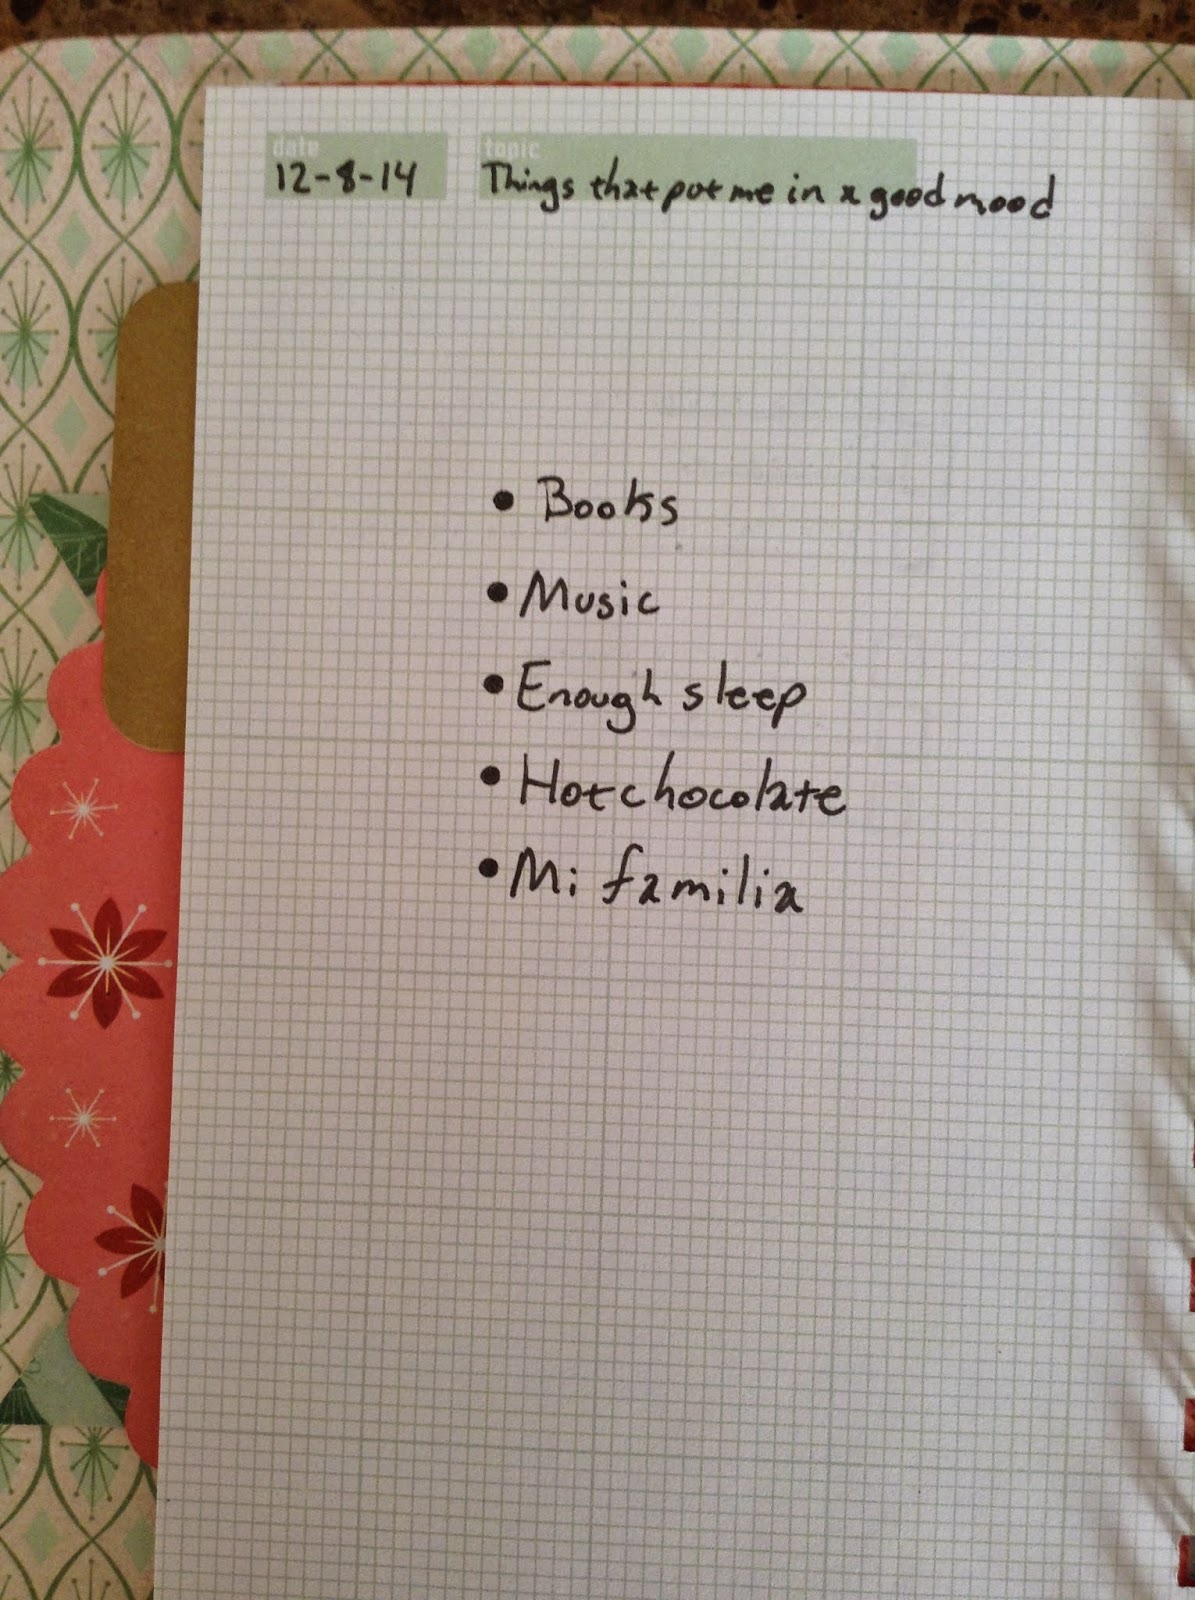 date topic
12-8-14 Things that put me in a good mood
• Books
• Music
• Enough sleep
• Hot chocolate
• Mi familia